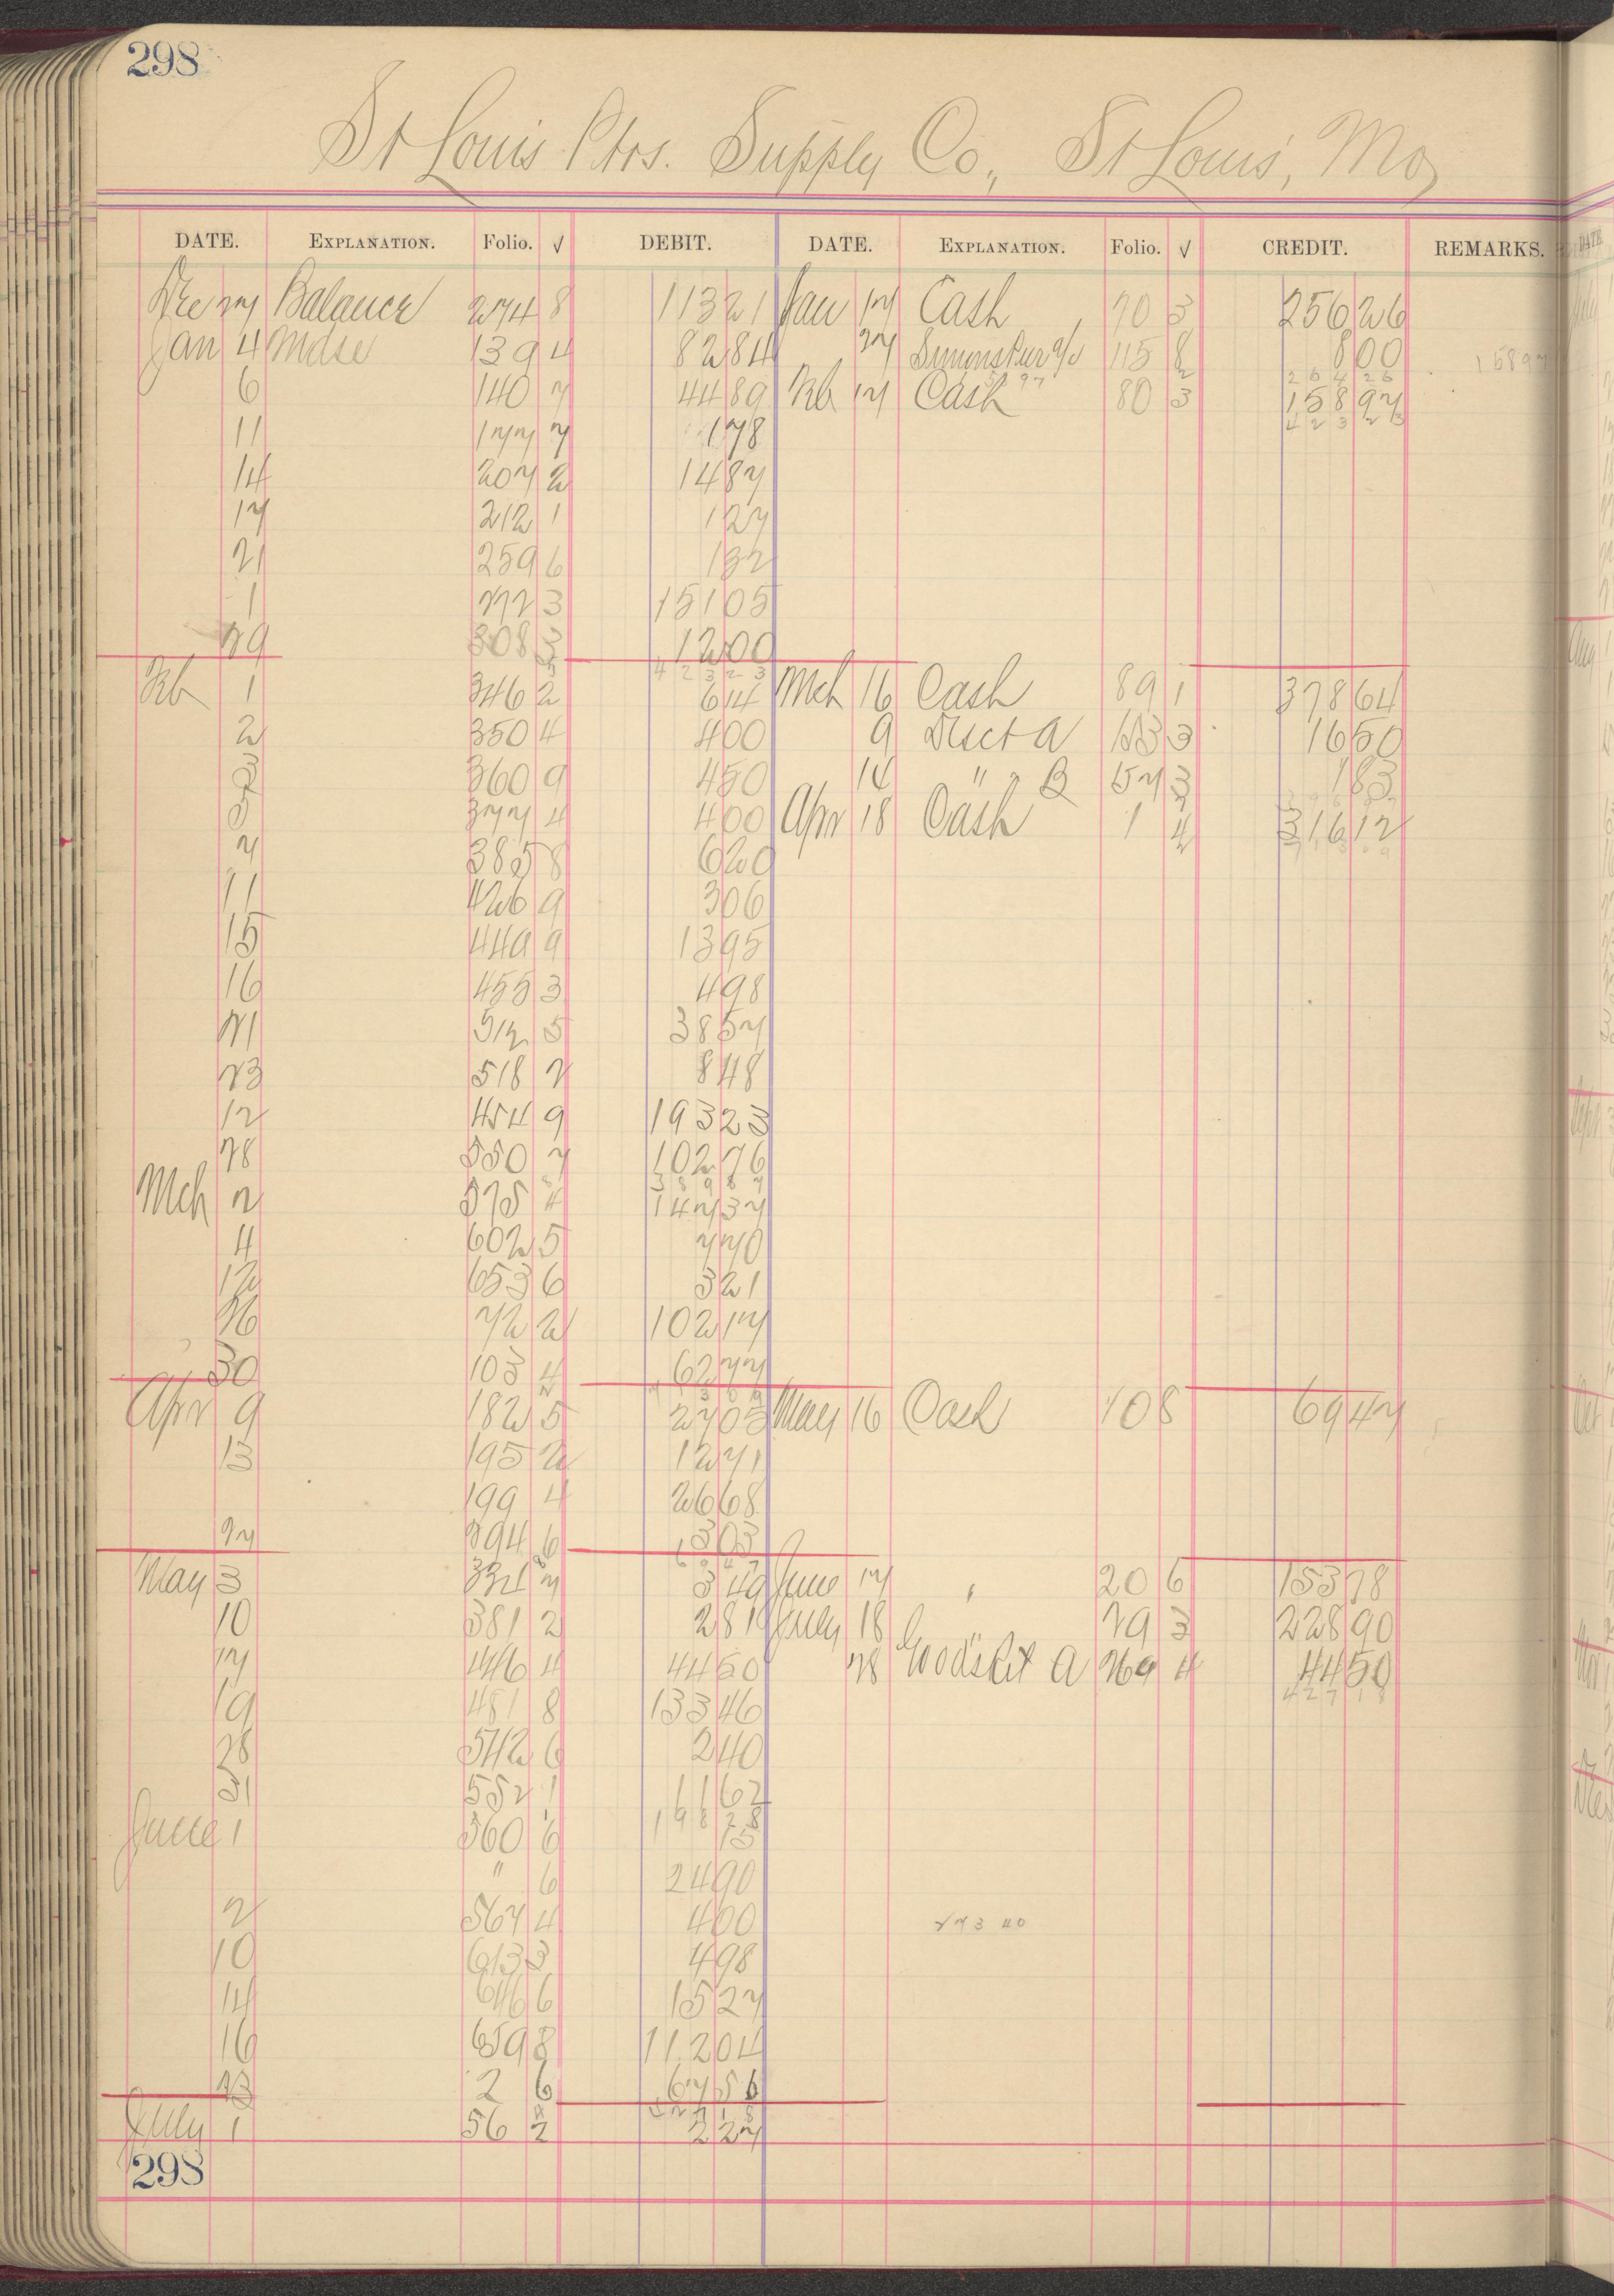 298
St Louis Ptrs. Supply Co., St Louis, Mo
DATE. EXPLANATION. Folio. √ DEBIT. DATE. EXPLANATION. Folio. √ CREDIT. REMARKS.
Dec 27 Balance 274 8 113 21 Jan 17 Cash 70 3 256 26
Jan 4 Mdse 139 4 82 84 27 115 8 8 00 158 97
264 26
6 140 7 44 89 Feb 17 Cash 80 3 158 97
423 23
11 177 7 1 78
14 207 2 14 87
17 212 1 1 27
21 259 6 1 32
1 272 3 151 05
29 308 3 12 00
423 23
Feb 1 346 2 6 14 Mch 16 Cash 89 1 378 64
2 350 4 4 00 9 Disct A 153 3 16 50
3 360 9 4 50 14 " " B 157 3 1 83
5 377 4 4 00 Apr 18 Cash 1 4 316 12
7 385 8 6 20
11 426 9 3 06
15 449 9 13 95
16 455 3 4 98
21 512 5 38 57
23 518 2 8 48
12 454 9 193 23
28 550 7 102 76
389 87
Mch 2 575 4 147 37
4 602 5 7 70
12 653 6 3 21
26 72 2 102 17
30 103 4 62 77
Apr 9 182 5 27 05 May 16 Cash 108 69 47
13 195 2 12 71
199 4 26 68
27 294 6 3 03
69 47
May 3 334 7 3 49 June 17 " 20 6 153 78
10 381 2 2 81 July 18 " 29 3 228 90
17 446 4 44 50 28 Goods Ret A 269 4 44 50
427 18
19 481 8 133 46
28 542 6 2 40
31 552 1 11 62
198 28
June 1 560 6 15
" 6 24 90
2 567 4 4 00 273 40
10 613 3 4 98
14 646 6 15 27
16 659 8 112 04
23 2 6 67 56
427 18
July 1 56 2 2 27
298